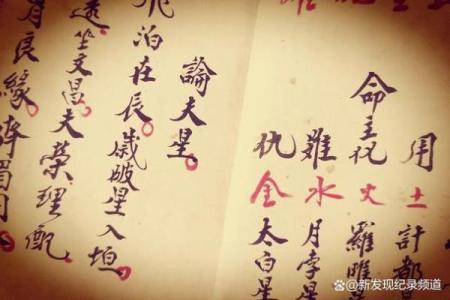 用土計都
命主火羅睺
難水月孛星
仇金太白星
論夫星。
泊在辰。歲破星入垣
坐文昌。夫榮理配
良緣
@新发现纪录频道